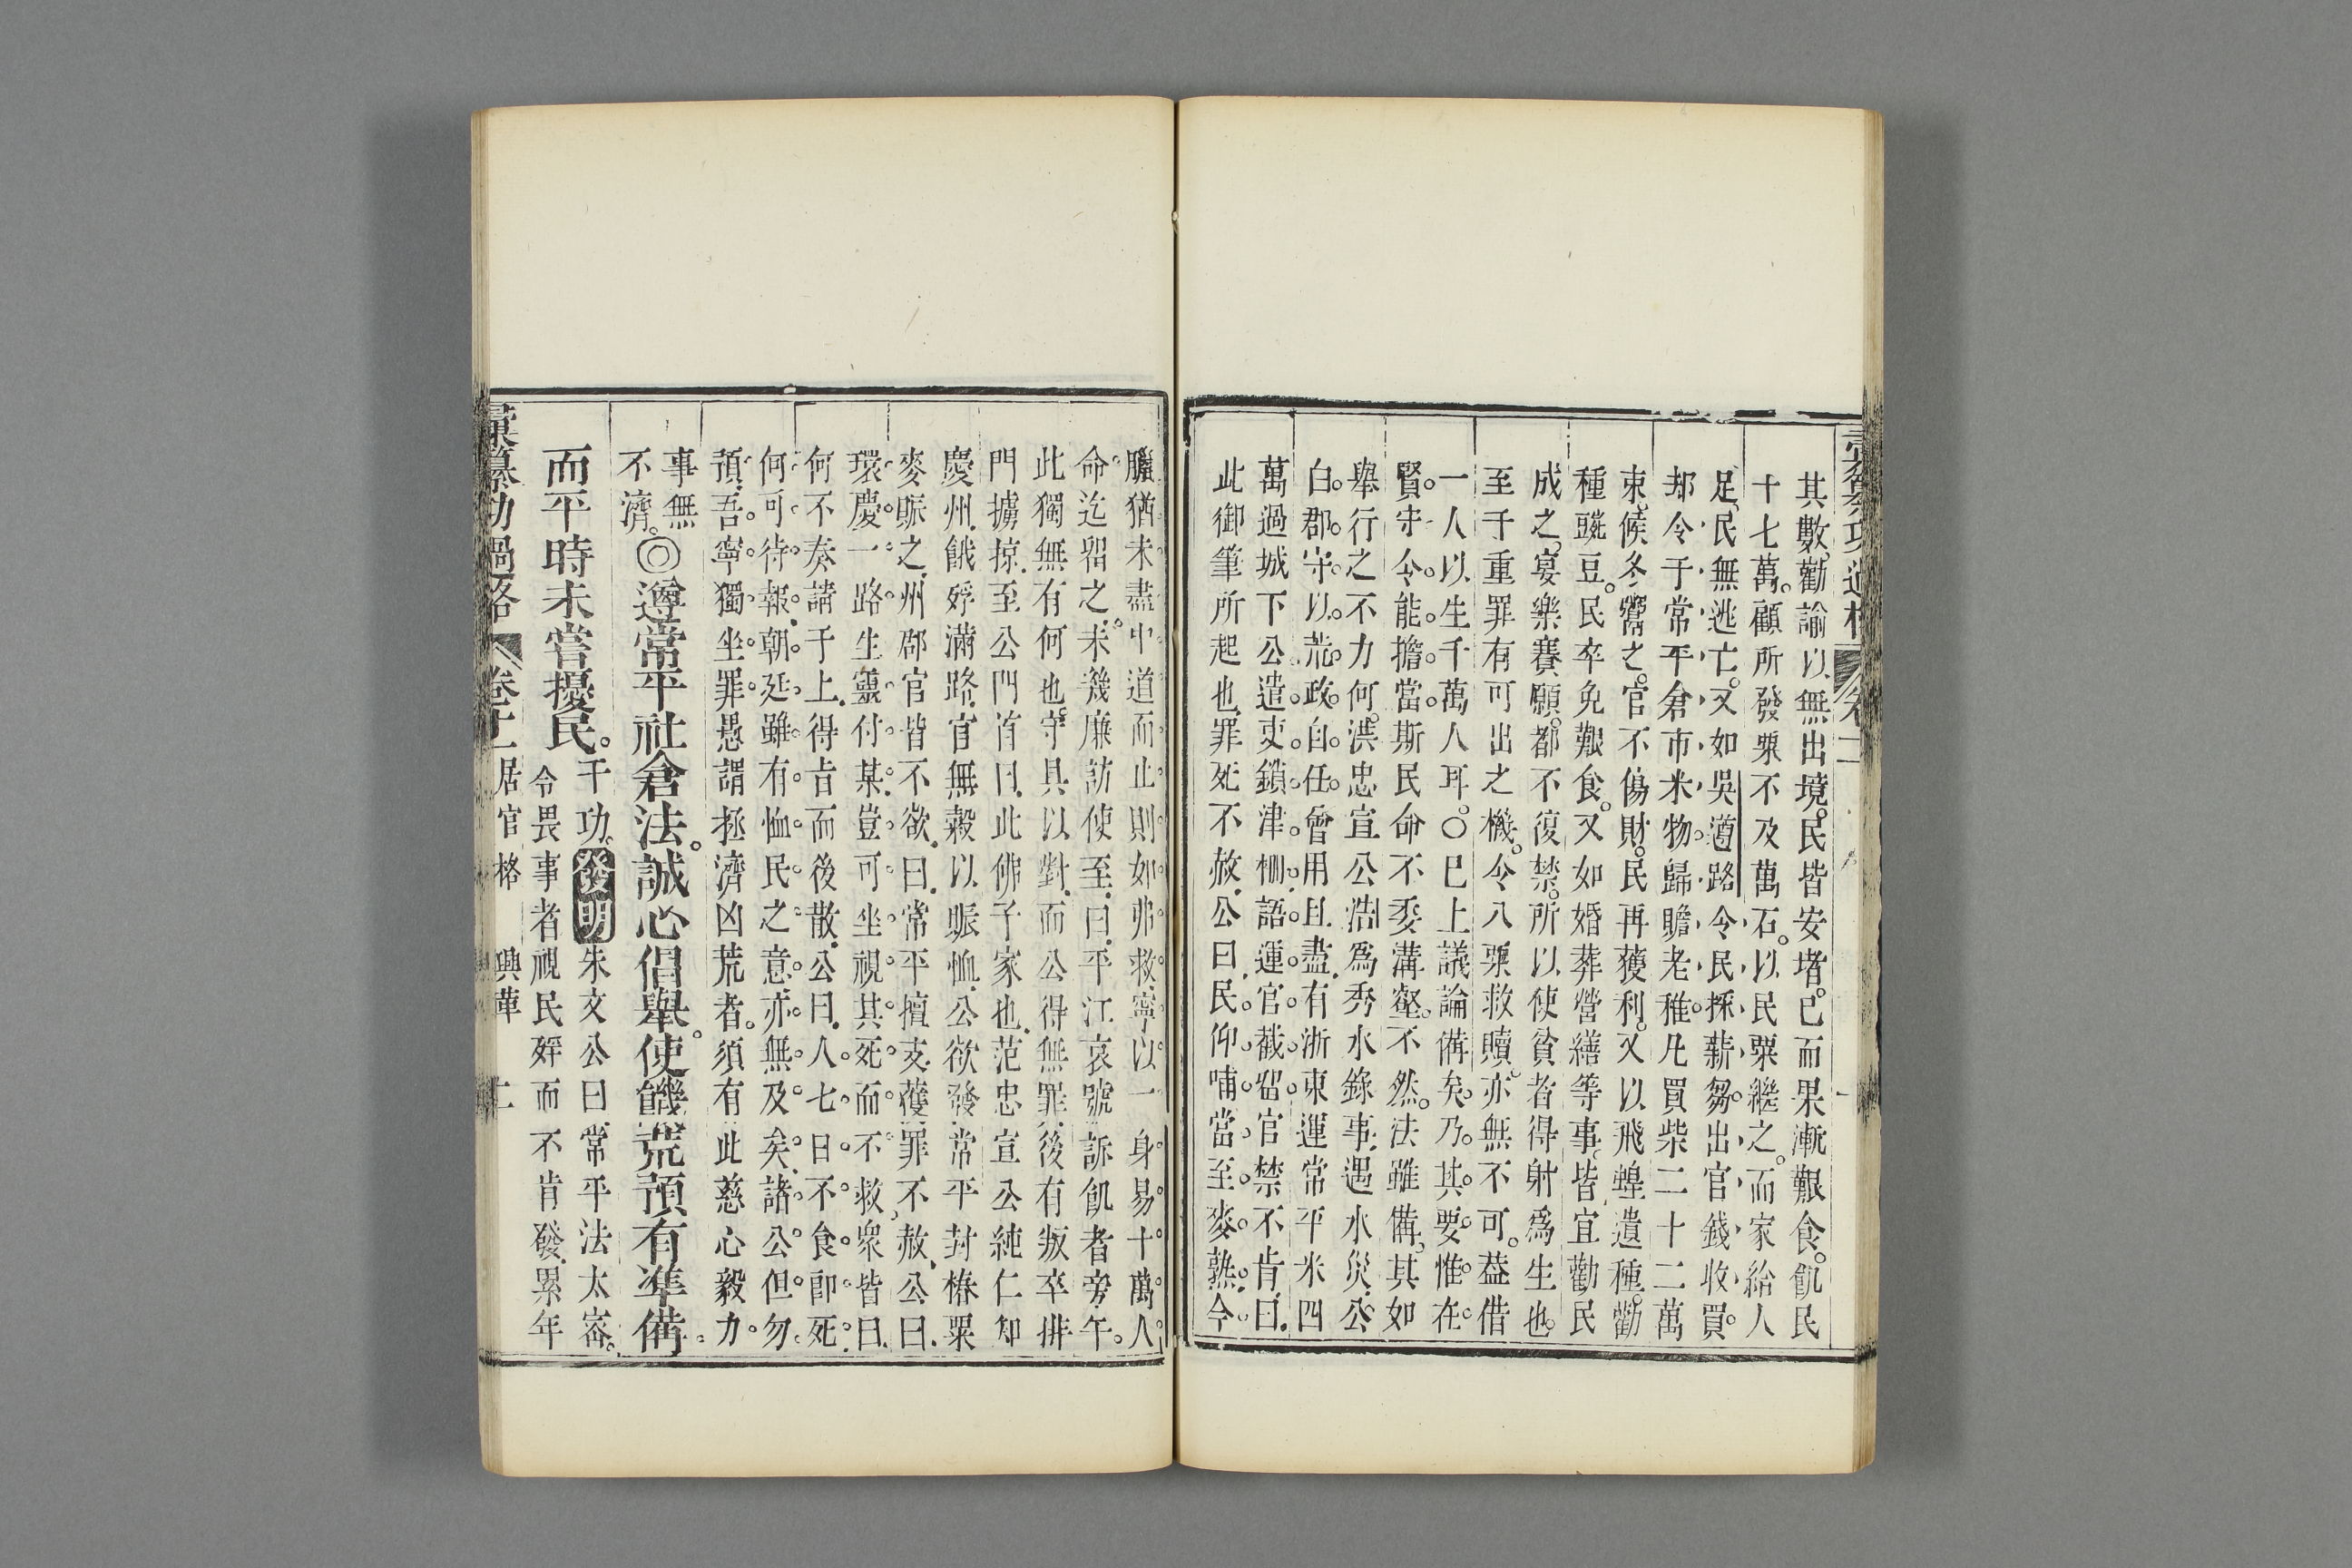 其數勸諭以無出境民皆安堵已而果漸艱食飢民
十七萬顧所發粟不及萬石以民粟繼之而家給人
足民無逃亡又如吳遵路令民採薪芻出官錢收買
却令于常平倉市米物歸贍老稚凡買柴二十二萬
束候冬鬻之官不傷財民再獲利又以飛蝗遺種勸
種豌豆民卒免艱食又如婚葬營繕等事皆宜勸民
成之宴樂賽願都不復禁所以使貧者得射為生也
至于重罪有可出之機令入粟救贖亦無不可葢借
一人以生千萬人耳○已上議論備矣乃其要惟在
賢守令能擔當斯民命不委溝壑不然法雖備其如
舉行之不力何洪忠宣公浩為秀水錄事遇水災公
白郡守以荒政自任會用且盡有浙東運常平米四
萬過城下公遣吏鎖津柵語運官截畱官禁不肯曰
此御筆所起也罪死不赦公曰民仰哺當至麥熟今
臘猶未盡中道而止則如弗救寧以一身易十萬人
命迄畱之未幾廉訪使至曰平江哀號訴飢者旁午
此獨無有何也守具以對而公得無罪後有叛卒排
門擄掠至公門首曰此佛子家也范忠宣公純仁知
慶州餓殍滿路官無穀以賑恤公欲發常平封樁粟
麥賑之州郡官皆不欲曰常平擅支獲罪不赦公曰
環慶一路生靈付某豈可坐視其死而不救眾皆曰
何不奏請于上得旨而後散公曰人七日不食卽死
何可待報朝廷雖有恤民之意亦無及矣諸公但勿
預吾寧獨坐罪愚謂拯濟凶荒者須有此慈心毅力
事無不濟◎遵常平社倉法誠心倡舉使饑荒預有準備
而平時未嘗擾民千功發明朱文公曰常平法太密令畏事者視民殍而不肯發累年
彙纂功過格 卷十二居官格 興革 二